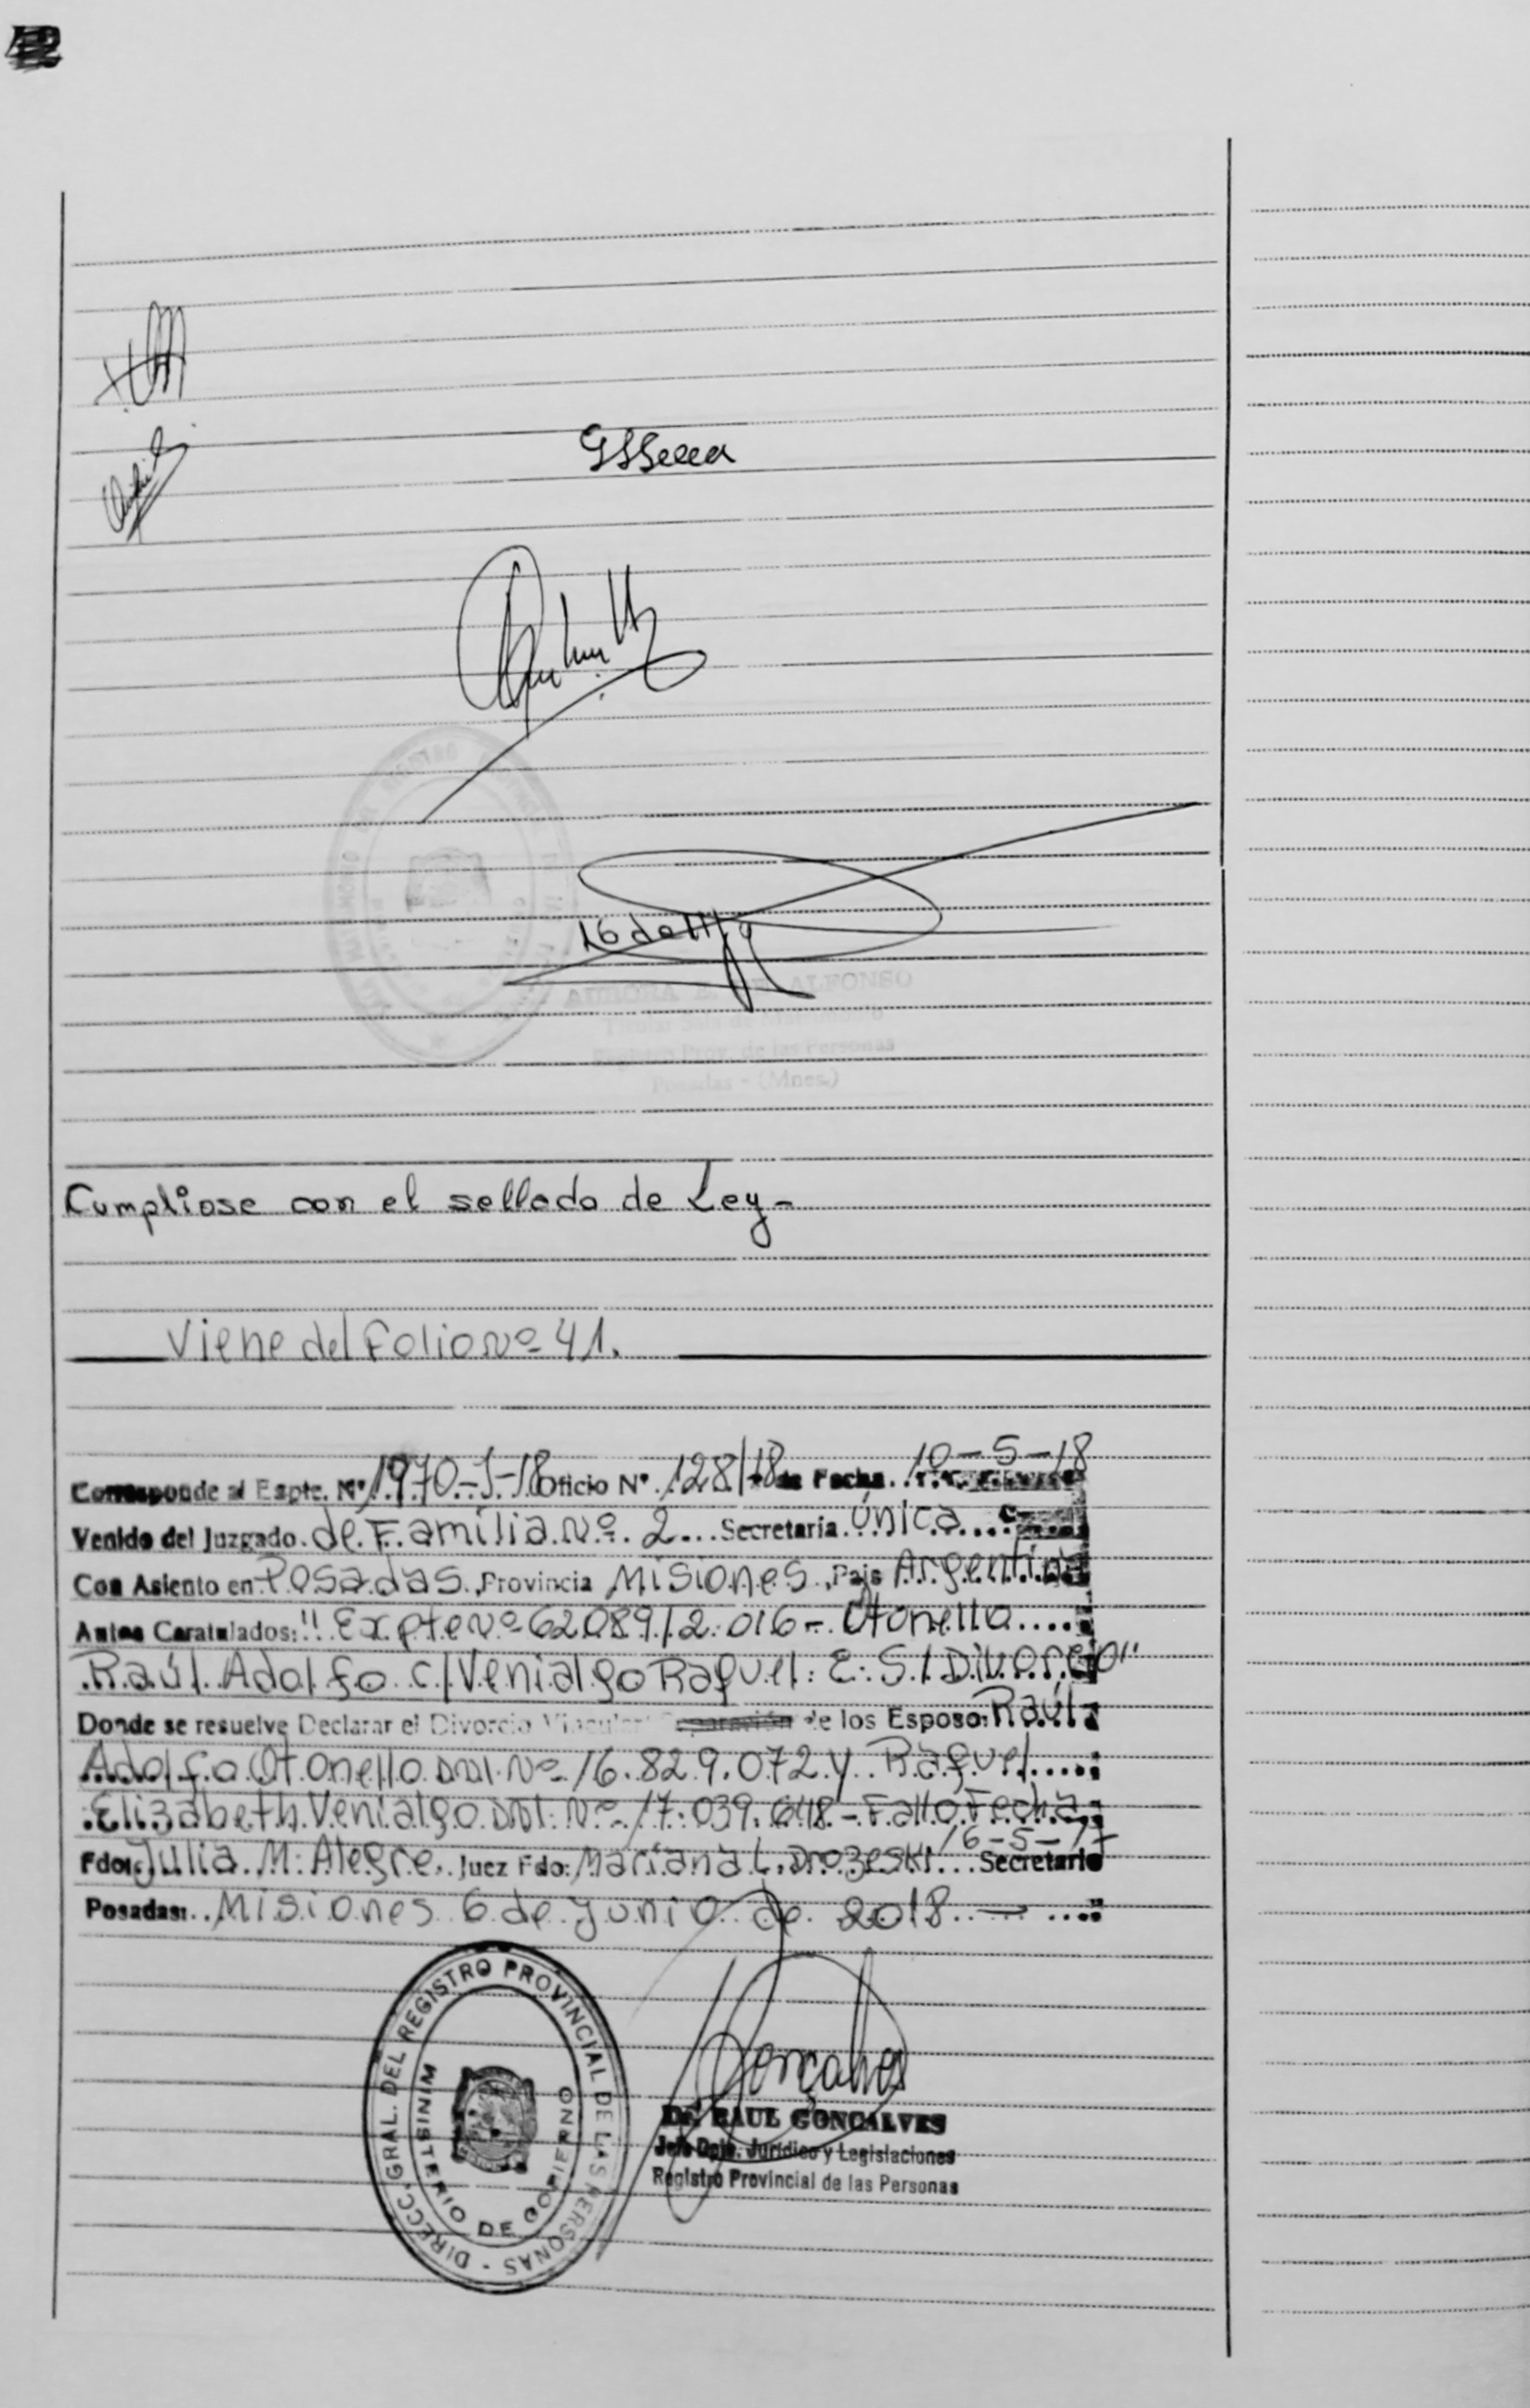 16 de
AURORA E. DE ALFONSO
Titular Sala de Matrimonio
Registro Prov. de las Personas
Posadas - (Mnes.)
Cumpliose con el sellado de Ley-
Viene del Folio Nº 41.
Corresponde al Expte. Nº 1970-J-18 Oficio Nº 128/18 de Fecha 10-5-18
Venido del Juzgado de Familia Nº 2 Secretaria Única
Con Asiento en Posadas Provincia Misiones Pais Argentina
Autos Caratulados: "Expte Nº 62089/2.016- Otonello
Raúl Adolfo c/ Venialgo Raquel E. S/ Divorcio"
Donde se resuelve Declarar el Divorcio Vincular Separación de los Esposos Raúl
Adolfo Otonello DNI Nº 16.829.072 y Raquel
Elizabeth Venialgo DNI Nº 17.039.648 - Fallo Fecha
16-5-17
Fdo: Julia M. Alegre Juez Fdo: Mariana L. Drozeski Secretario
Posadas: Misiones 6 de junio de 2018
DIRECC. GRAL. DEL REGISTRO PROVINCIAL DE LAS PERSONAS -
MINISTERIO DE GOBIERNO
Goncalves
Dr. RAUL GONCALVES
Jefe Dpto. Jurídico y Legislaciones
Registro Provincial de las Personas